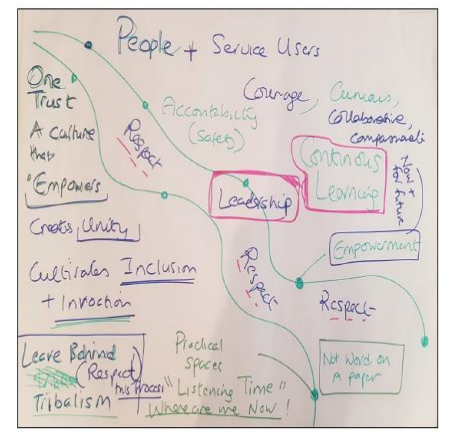 People + Service Users
One
Trust
A culture
that
"Empowers
Creates Unity
Cultivates Inclusion
+ Innovation
Leave Behind
(Respect)
this process
Tribalism
Respect
Accountability
(Safety)
Courage, Curious,
Collaborative,
compassionate
Continous
Learning
Now +
for future
Leadership
Empowerment
Respect
Respect
Practical
spaces
"Listening Time"
Where are we Now!
Not word on
a paper